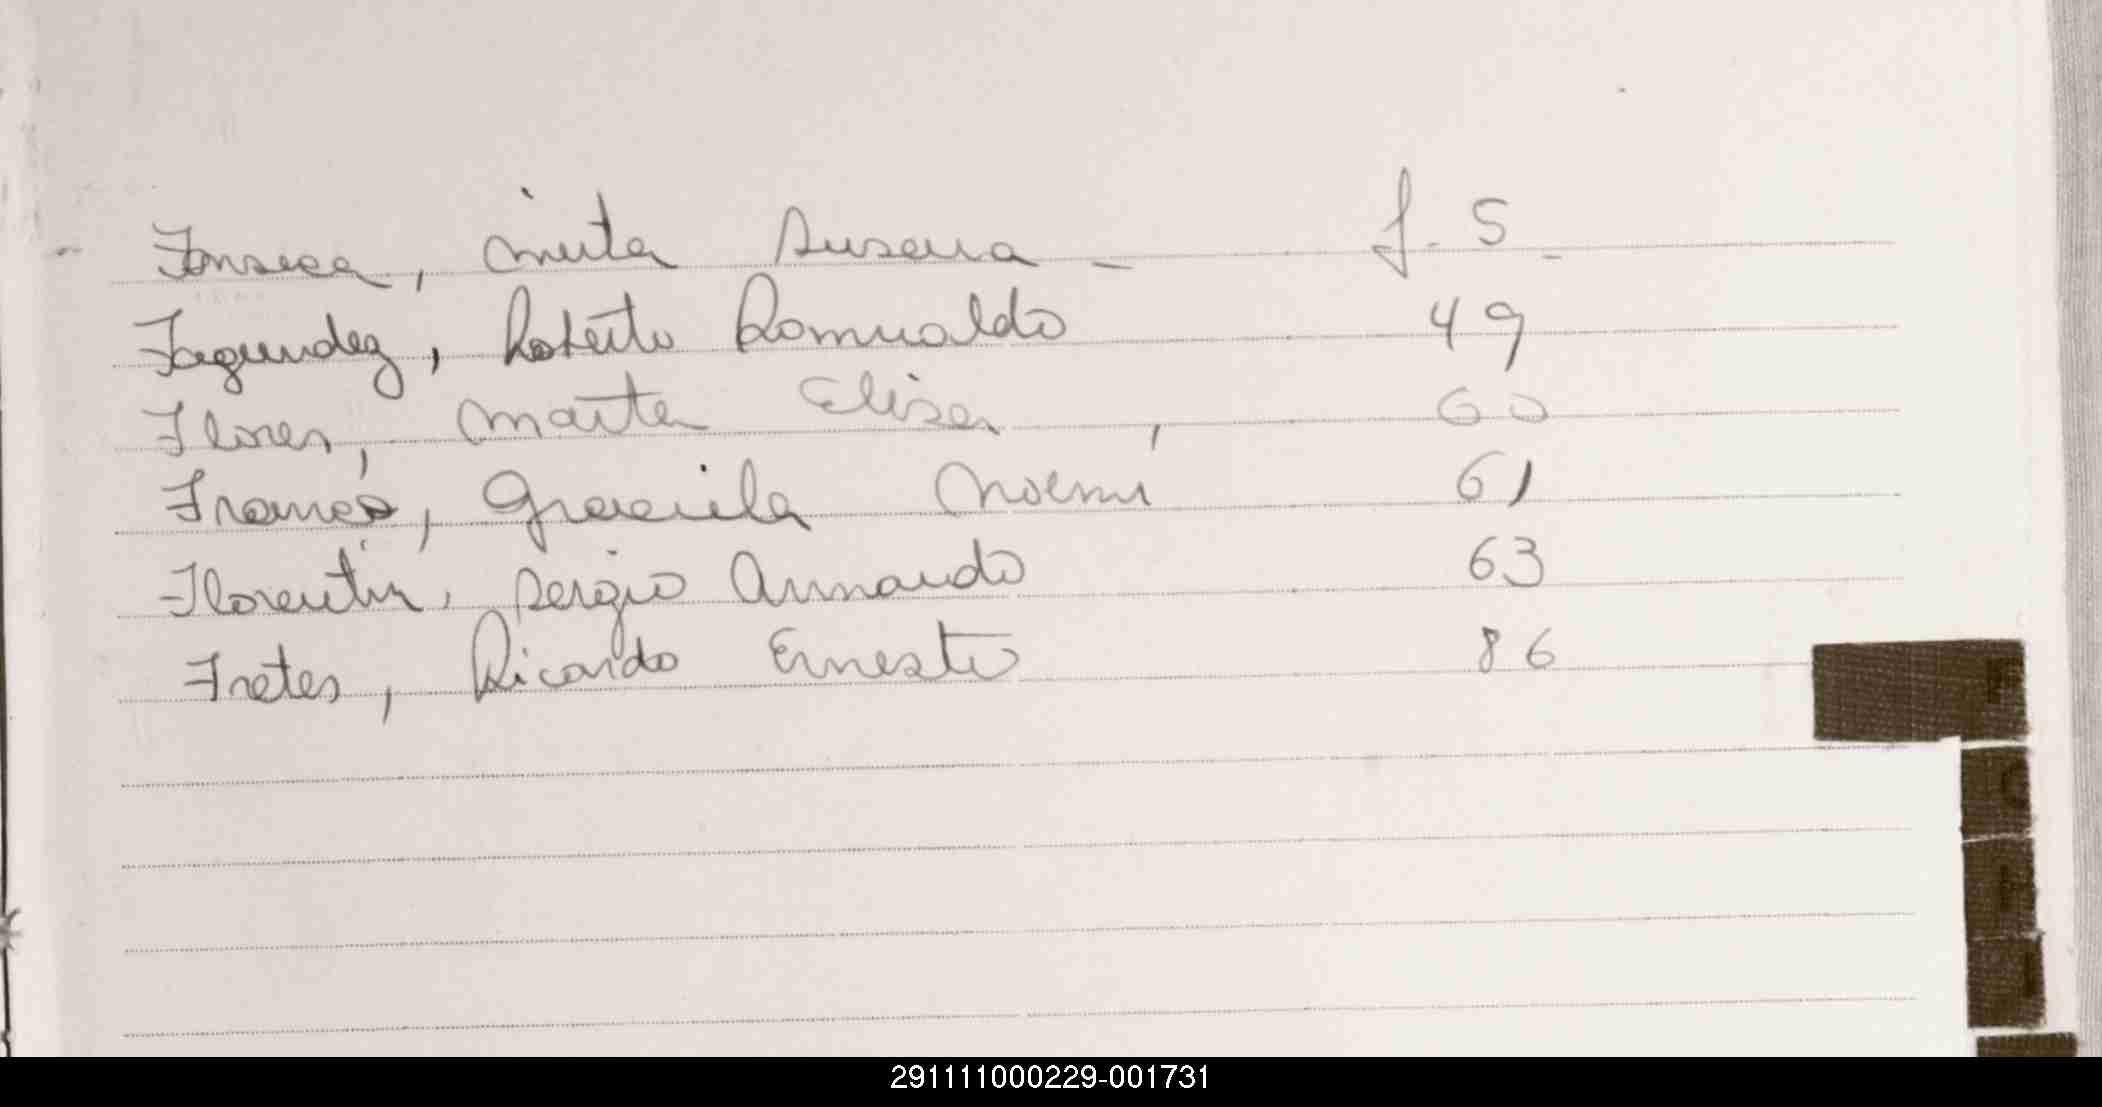 Fonseca, Mirta Susana - f. 5 -
Fagundez, Roberto Romualdo 49
Flores, Marta Elisa, 60
Franco, Graciela Noemi 61
Florentin, Sergio Armando 63
Fretes, Ricardo Ernesto 86
F
G
I
J
291111000229-001731